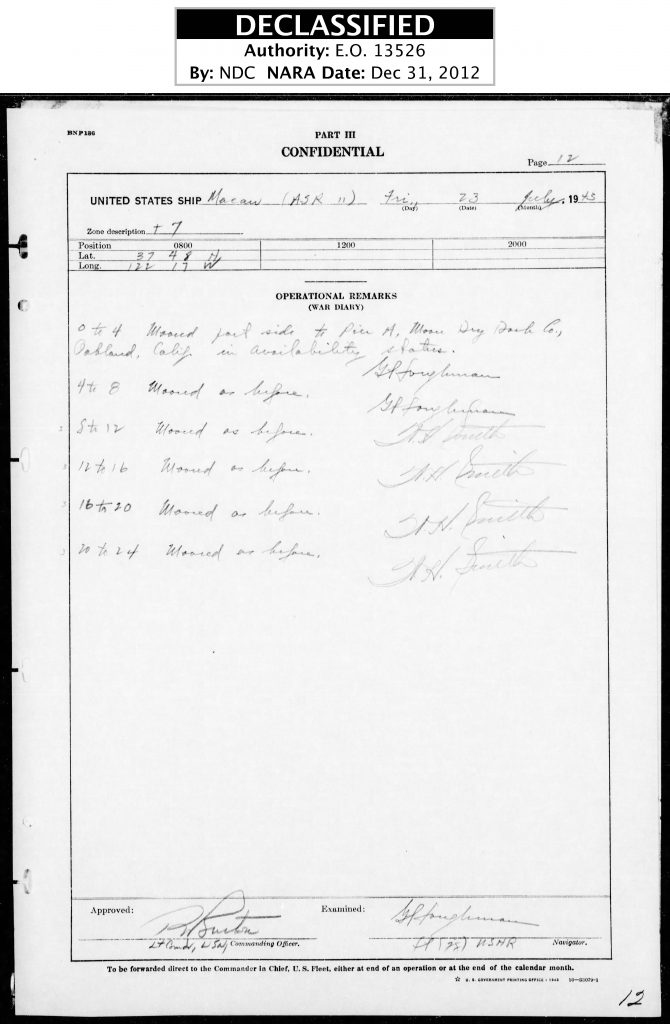 DECLASSIFIED
Authority: E.O. 13526
By: NDC NARA Date: Dec 31, 2012
BNP186
PART III
CONFIDENTIAL
Page 12
UNITED STATES SHIP Macaw (ASR 11) Fri., 23 July, 1943
(Day) (Date) (Month)
Zone description + 7
Position 0800 1200 2000
Lat. 37 48 N
Long. 122 17 W
OPERATIONAL REMARKS
(WAR DIARY)
0 to 4 Moored port side to Pier A, Moore Dry Dock Co.,
Oakland, Calif. in availability status.
4 to 8 Moored as before.
8 to 12 Moored as before.
W H Smith
12 to 16 Moored as before.
W H Smith
16 to 20 Moored as before.
W H Smith
20 to 24 Moored as before.
W H. Smith
Approved: Burton Examined:
Lt Comdr, USN, Commanding Officer. USNR Navigator.
To be forwarded direct to the Commander in Chief, U. S. Fleet, either at end of an operation or at the end of the calendar month.
☆ U. S. GOVERNMENT PRINTING OFFICE : 1942
12